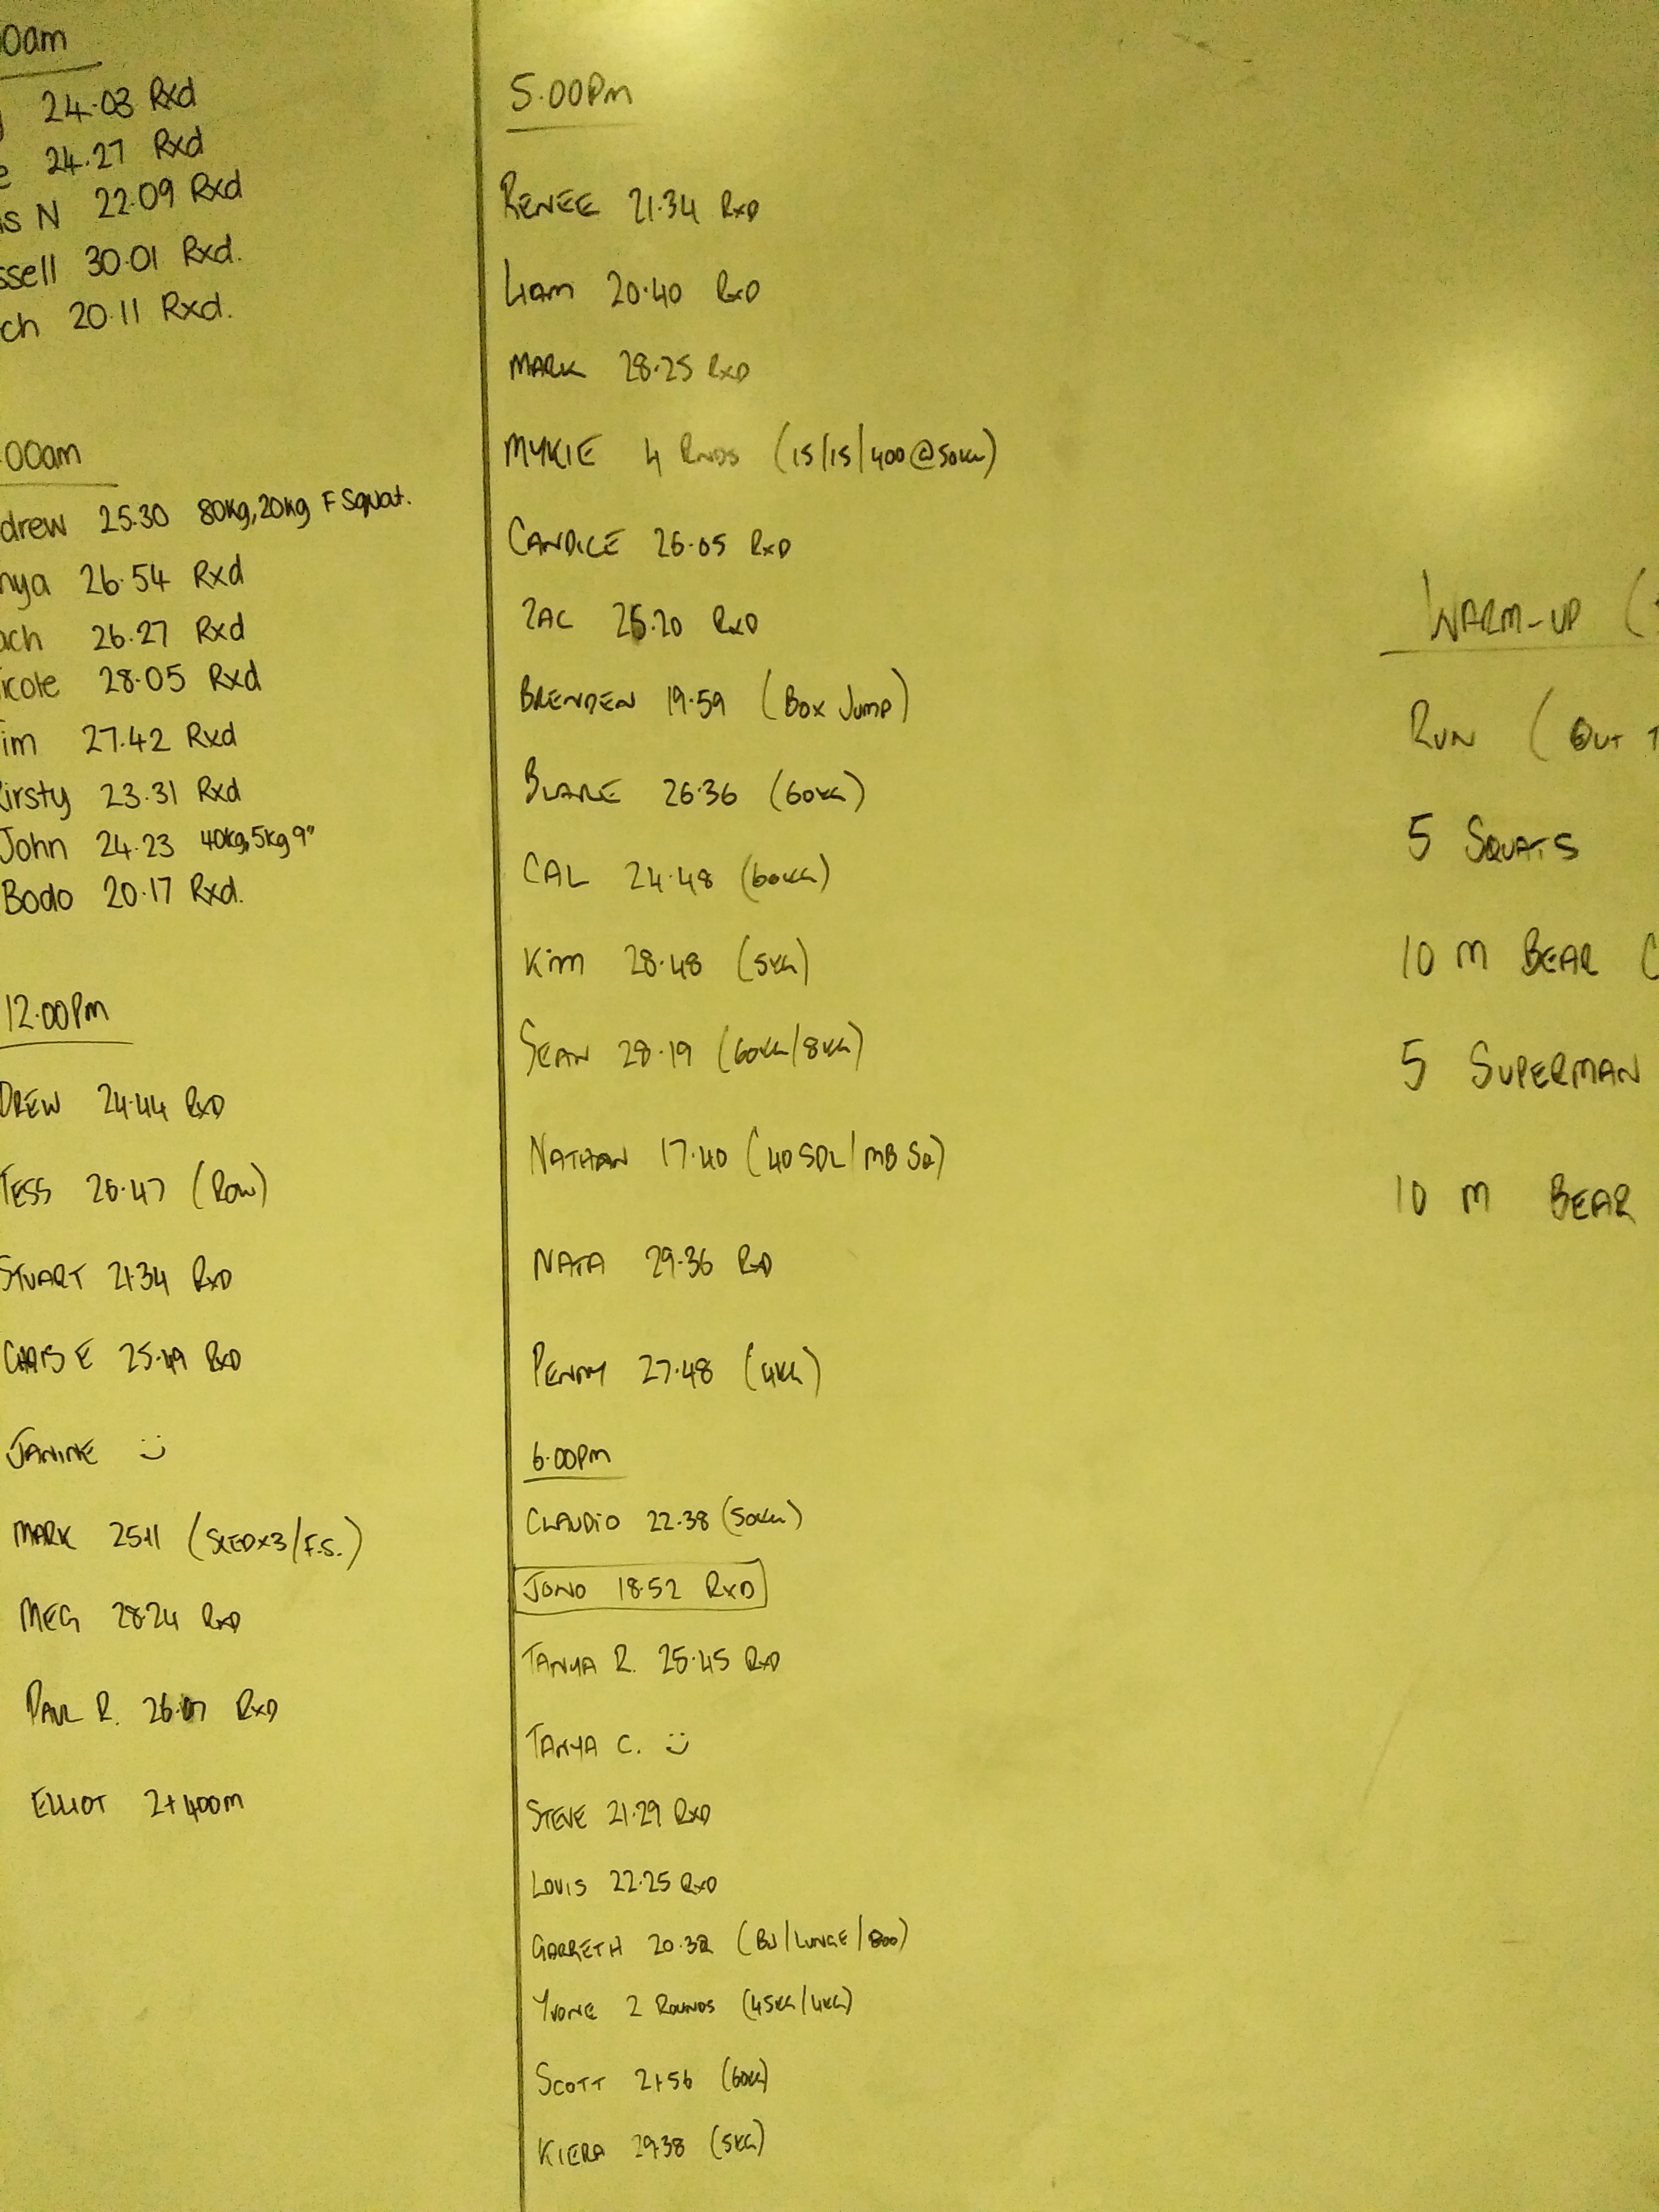 0am
24.03 Rxd
e 24.27 Rxd
is N 22.09 Rxd
ssell 30.01 Rxd.
ch 20.11 Rxd.
.00am
drew 25.30 80kg, 20kg F Squat.
nya 26.54 Rxd
ach 26.27 Rxd
icole 28.05 Rxd
im 27.42 Rxd
Kirsty 23.31 Rxd
John 24.23 40kg, 5kg 9"
Bodo 20.17 Rxd.
12.00PM
DREW 24.44 RXD
TESS 26.47 (ROW)
STUART 21.34 RXD
CHRIS E 25.49 RXD
JANINE
MARK 25.11 (SLEDx3/F.S.)
MEG 28.24 RXD
PAUL R. RXD
ELLIOT 2+400m
5.00PM
RENEE 21.34 RXD
LIAM 20.40 RXD
MARK 28.25 RXD
MYKIE 4 RNDS (15/15/400@50KG)
CANDICE 26.05 RXD
ZAC RXD
BRENDEN 19.59 (BOX JUMP)
26.36 (60KG)
CAL 24.48 (60KG)
KIM 28.48 (5KG)
SEAN 28.19 (60KG/8KG)
NATHAN 17.40 (40SDL/MB SQ)
NATA 29.36 RXD
PENNY 27.48 (4KG)
6.00PM
CLAUDIO 22.38 (50KG)
JONO 18.52 RXD
TANYA R. 25.45 RXD
TANYA C.
STEVE 21.29 RXD
LOUIS 22.25 RXD
GARRETH (BJ/LUNGE/800)
YVONE 2 ROUNDS (45KG/4KG)
SCOTT 21.56 (60KG)
KIERA 29.38 (5KG)
WARM-UP (
RUN (OUT T
5 SQUATS
10 M BEAR C
5 SUPERMAN
10 M BEAR